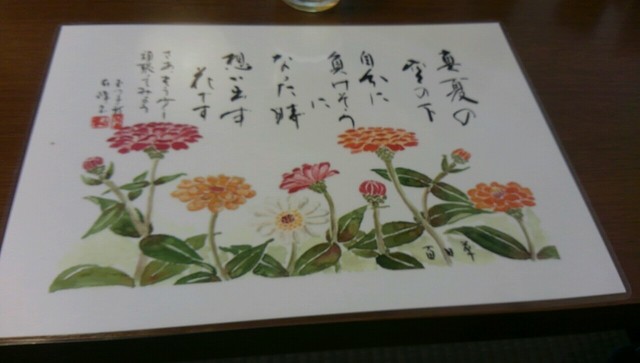 真夏の
空の下
自分に
負けそう
に
なった時
想い出す
花です
さあもう少し
頑張ってみよう
百日草